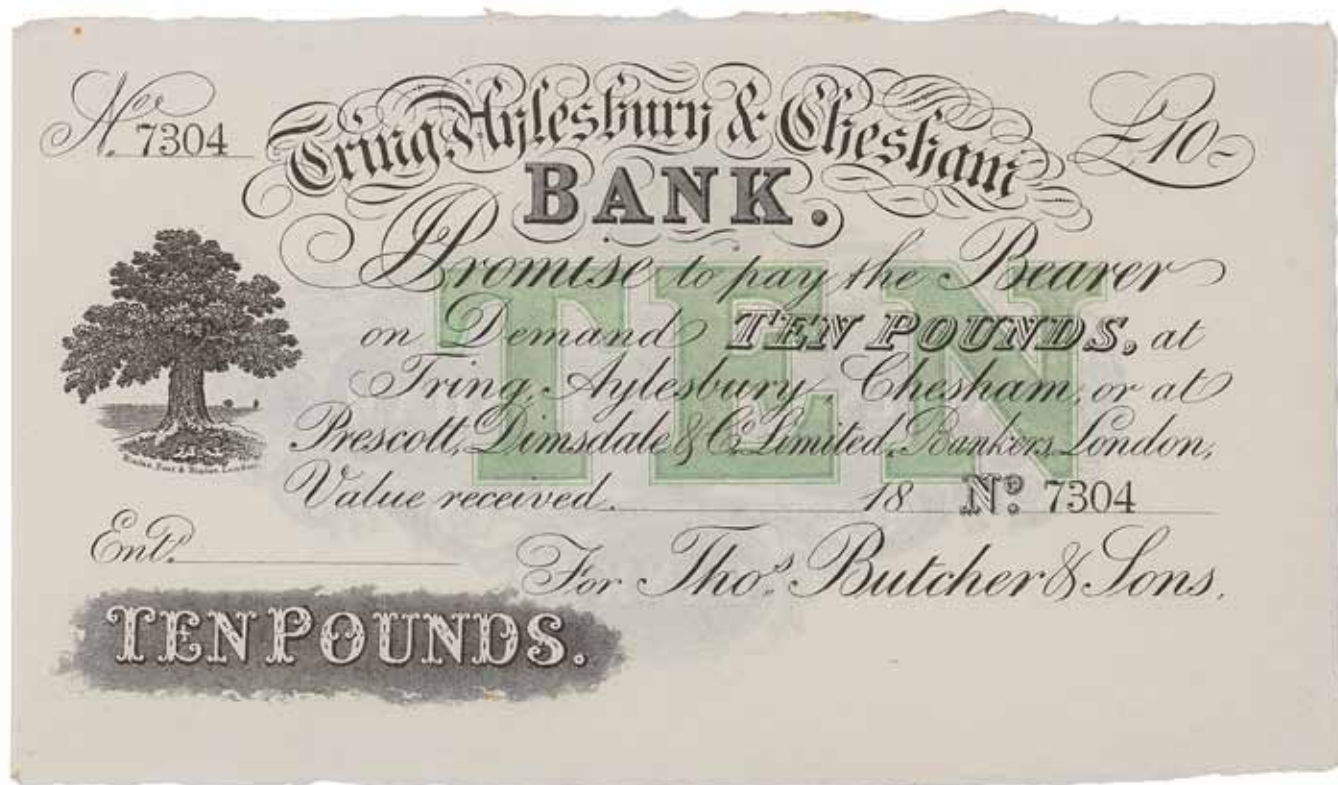 No. 7304
£10-
Tring Aylesbury & Chesham
BANK.
TEN
I Promise to pay the Bearer
on Demand TEN POUNDS, at
Tring, Aylesbury, Chesham, or at
Prescott, Dimsdale & Co. Limited, Bankers, London,
Value received. 18 No. 7304
Entd.
For Thos. Butcher & Sons.
TEN POUNDS.